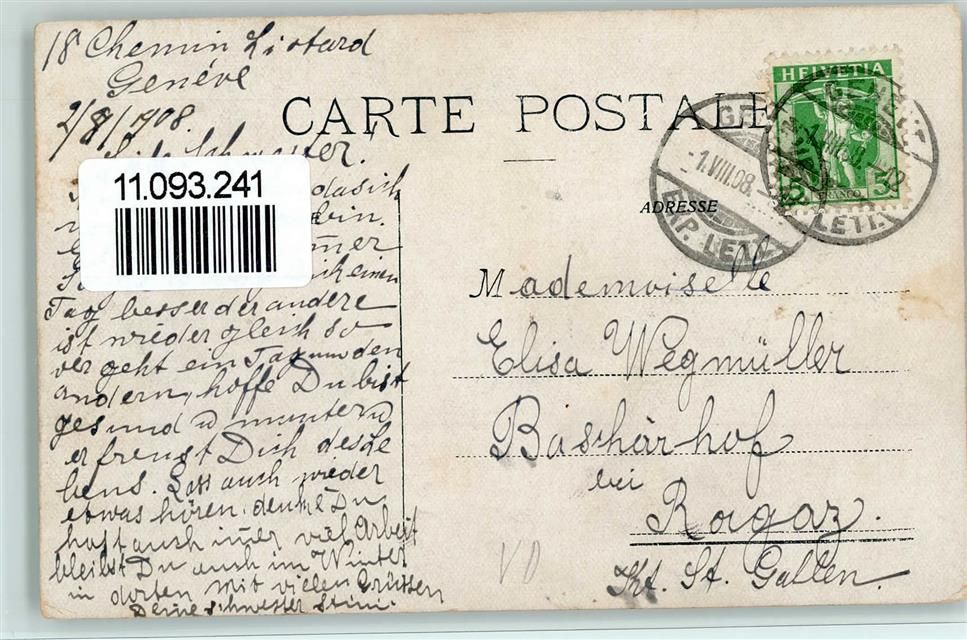 18 Chemin Liotard
Genéve
2/8/1908.
CARTE POSTALE
HELVETIA
5 5
FRANCO
-1.VIII.08.
EXP. LETT.
LETT.
ADRESSE
11.093.241
Schwester.
dasich
bin.
einen
Tag besser der andere
ist wieder gleich so
vergeht ein Tag um den
andern, hoffe Du bist
gesund u munter u
erfreust Dich des Le
bens. Lass auch wieder
etwas hören. denke Du
hast auch imer viel Arbeit
bleibst Du auch im Winter
in dorten Mit vielen Grüssen
Deine Schwester Stini.
Mademoiselle
Elisa Wegmüller
Baschärhof
bei
Ragaz.
Kt. St. Gallen